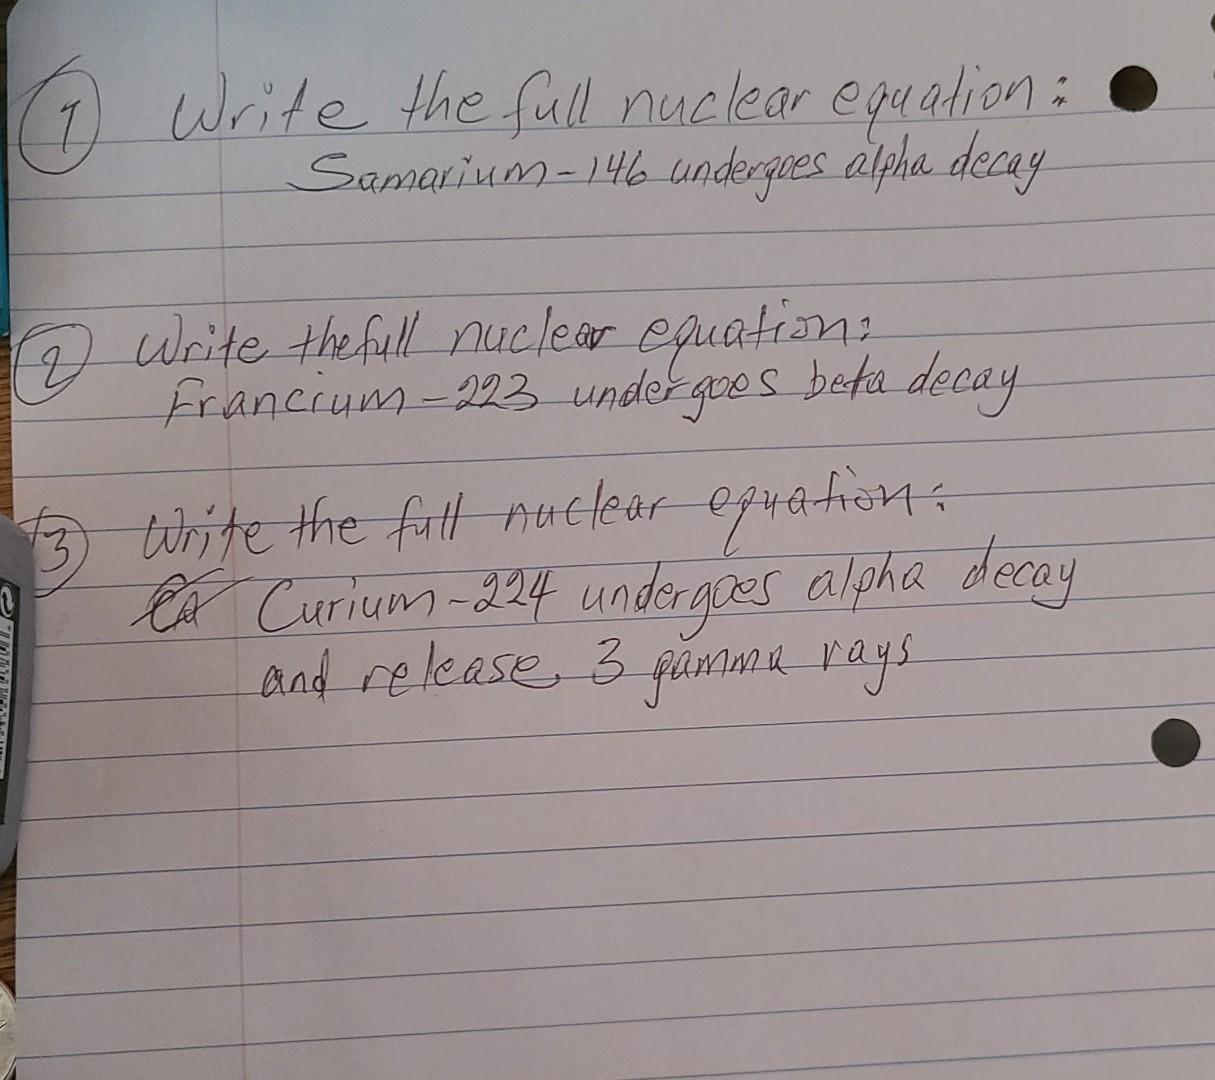 ① Write the full nuclear equation:
Samarium-146 undergoes alpha decay
② Write the full nuclear equation:
Francium-223 undergoes beta decay
③ Write the full nuclear equation:
Curium-224 undergoes alpha decay
and release 3 gamma rays